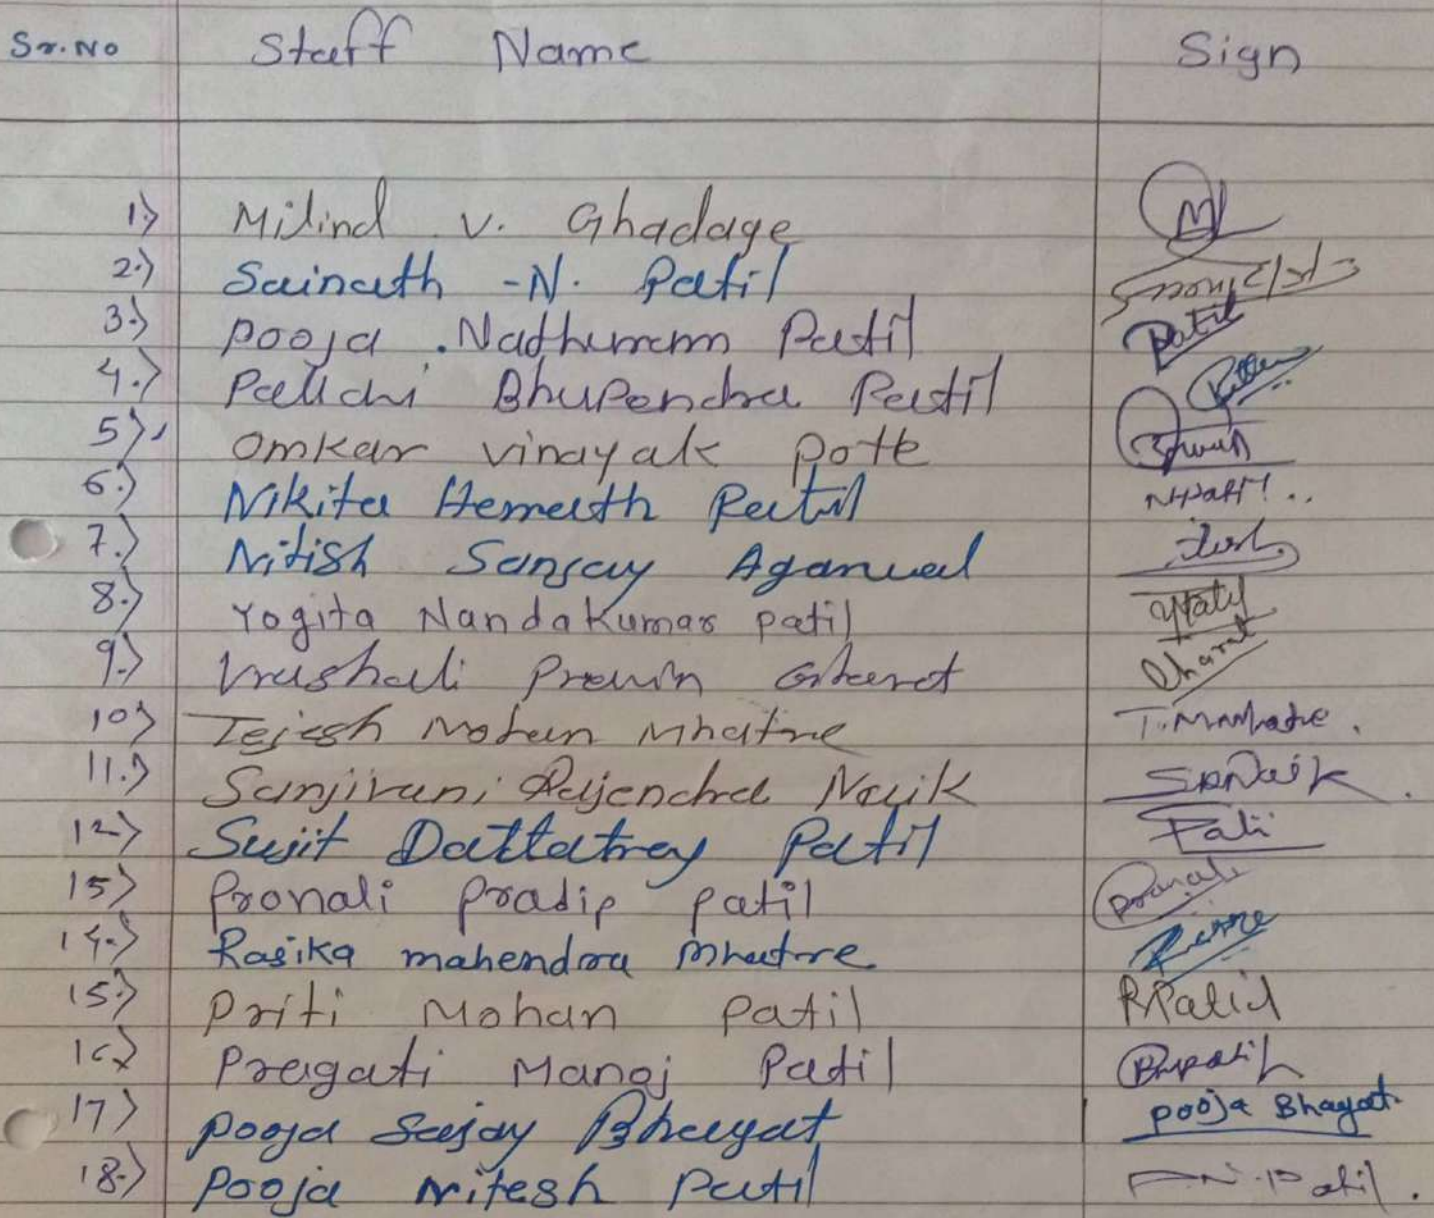 Sr.No Staff Name Sign
1) Milind V. Ghadage
2.) Sainath -N. Patil
3.) Pooja .Nathuram Patil Patil
4.) Pallavi Bhupendra Patil
5) Omkar vinayak pote
6.) Nikita Hemnath Patil NPatil..
7.) Nitish Sanjay Agarwal
8.) Yogita Nandakumar patil YPatil
9.) Vrushali Pravin Gharat Gharat
10) Tejesh Mohan Mhatre T.M.Mhatre.
11.) Sanjivani Rajendra Naik SRNaik.
12.) Sujit Dattatrey Patil Patil
15) Pranali Pradip Patil Pranali
14.) Rasika mahendra Mhatre
15.) Priti Mohan Patil PPatil
16.) Pragati Manoj Patil
17) Pooja Sanjay Bhagat pooja Bhagat
18.) Pooja Nitesh Patil P.N.Patil.